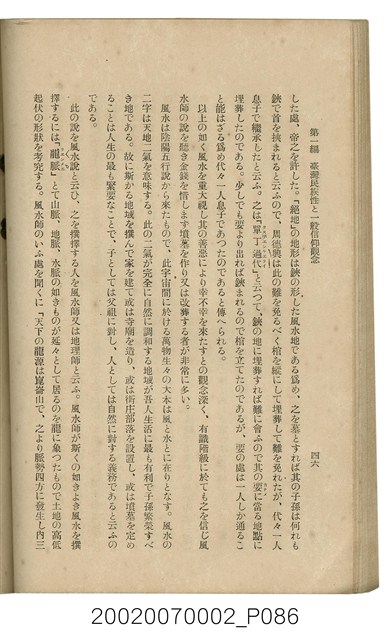 第一編　臺灣民族性と一般信仰觀念
四六
した處、帝之を許した。「絕地」の地形は鋏の形した風水地である爲め、之を墓とすれば其の子孫は何れも
鋏で首を挾まれると云ふので、周德興は此の難を免るべく棺を縱にして埋葬して難を免れたが、代々一人
息子で繼承したと云ふ。之は「單丁過代」と云つて、鋏の地に埋葬すれば難に會ふので其の要に當る地點に
埋葬したのである。少しでも要より出れば鋏まれるので棺を立てたのであるが、要の處は一人しか通るこ
と能はざる爲め代々一人息子であつたのであると傳へられる。
以上の如く風水を重大視し其の善惡により幸不幸を來たすとの觀念深く、有識階級に於ても之を信じ風
水師の說を聽き金錢を惜します墳墓を作り又は改葬する者が非常に多い。
風水は陰陽五行說から來たもので、此宇宙間に於ける萬物生々の大本は風と水とに在りとなす。風水の
二字は天地二氣を意味する。此の二氣が完全に自然に調和する地域が吾人生活に最も有利で子孫繁榮すべ
き地である。故に斯かる地域を撰んで家を建て或は寺廟を造り、或は街庄部落を設置し、或は墳墓を定め
ることは人生の最も緊要なことで、子としては父祖に對し、人としては自然に對する義務であると云ふの
である。
此の說を風水說と云ひ、之を撰擇する人を風水師又は地理師と云ふ。風水師が斯くの如きよき風水を撰
擇するには「龍脈」とて山脈、地脈、水脈の如きものが延々として居るのを龍に象つたもので土地の高低
起伏の形狀を考究する。風水師のいふ處を聞くに「天下の龍源は崑崙山で、之より脈勢四方に發生し內三
20020070002_P086